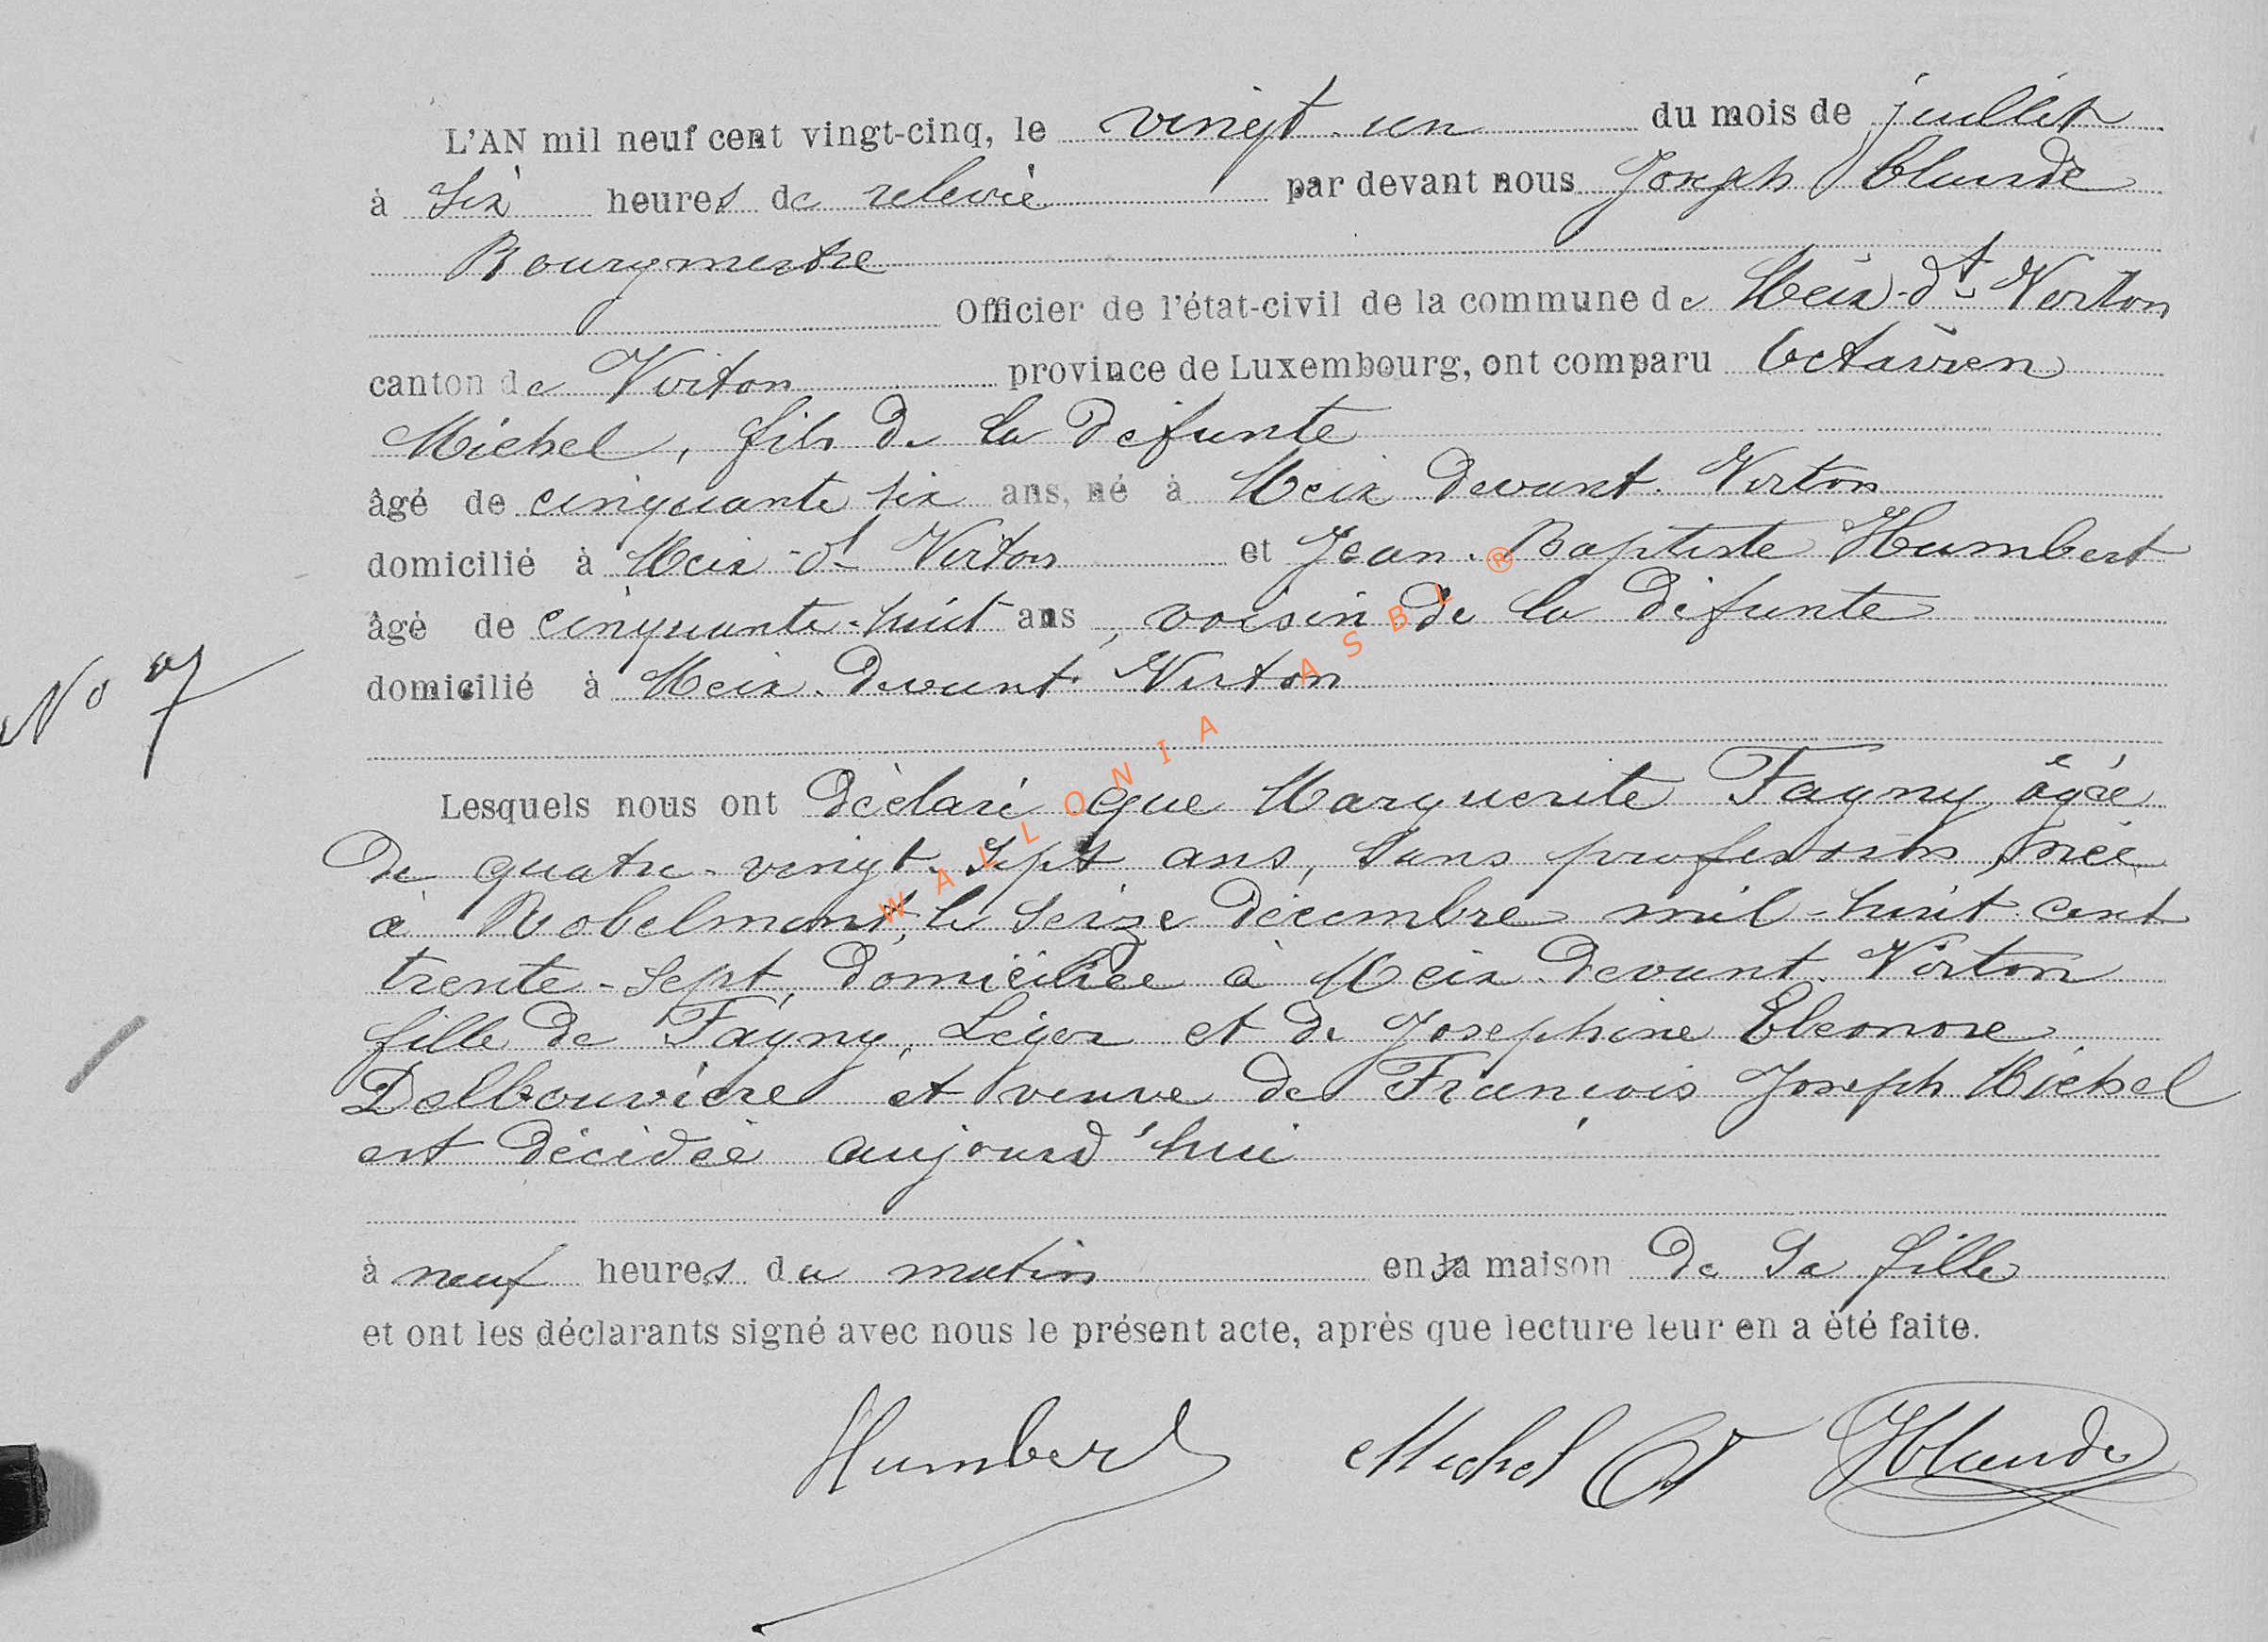 L'AN mil neuf cent vingt-cinq, le vingt-un du mois de juillet
à six heures de relevée par devant nous Joseph Claude
Bourgmestre
Officier de l'état-civil de la commune de Meix-dt Virton
canton de Virton province de Luxembourg, ont comparu Octavien
Michel, fils de la défunte
âgé de cinquante six ans, né à Meix devant Virton
domicilié à Meix-dt Virton et Jean-Baptiste Humbert
âgé de cinquante-huit ans, voisin de la défunte
domicilié à Meix-devant-Virton
No 7
Lesquels nous ont déclaré que Marguerite Fagny âgée
de quatre-vingt-sept ans, sans profession, née
à Robelmont, le seize décembre mil-huit-cent
trente-sept, domiciliée à Meix-devant-Virton
fille de Fagny, Léger et de Josephine Eleonore
Delbouvière et veuve de François Joseph Michel
est décédée aujourd'hui
à neuf heures du matin en la maison de sa fille
et ont les déclarants signé avec nous le présent acte, après que lecture leur en a été faite.
Humbert Michel Ot JClaude
WALLONIA ASBL ®